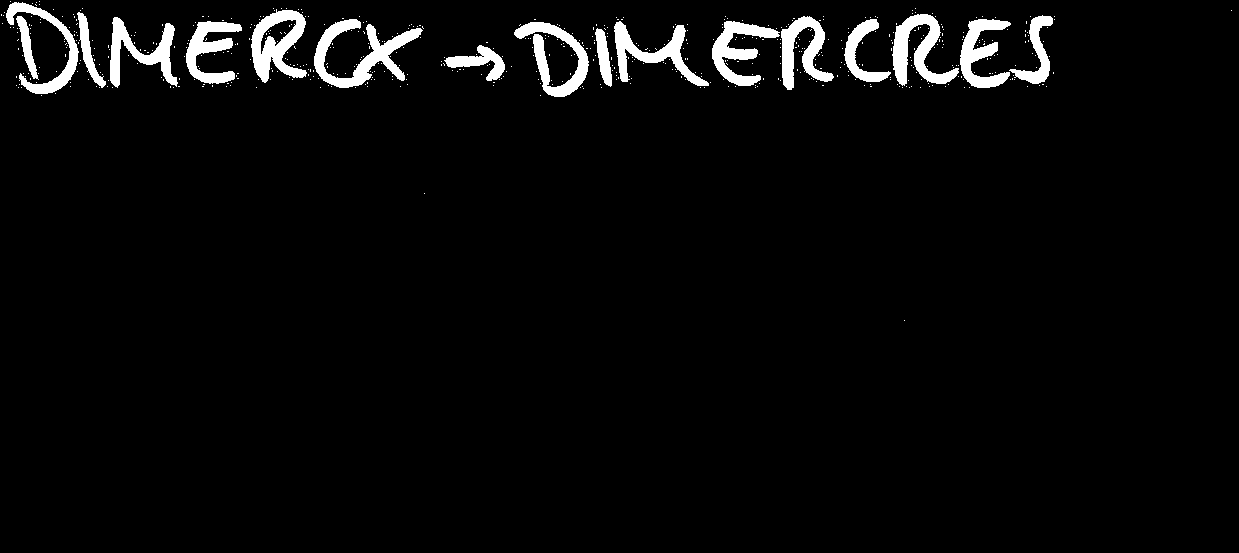 DIMERCX → DIMERCRES